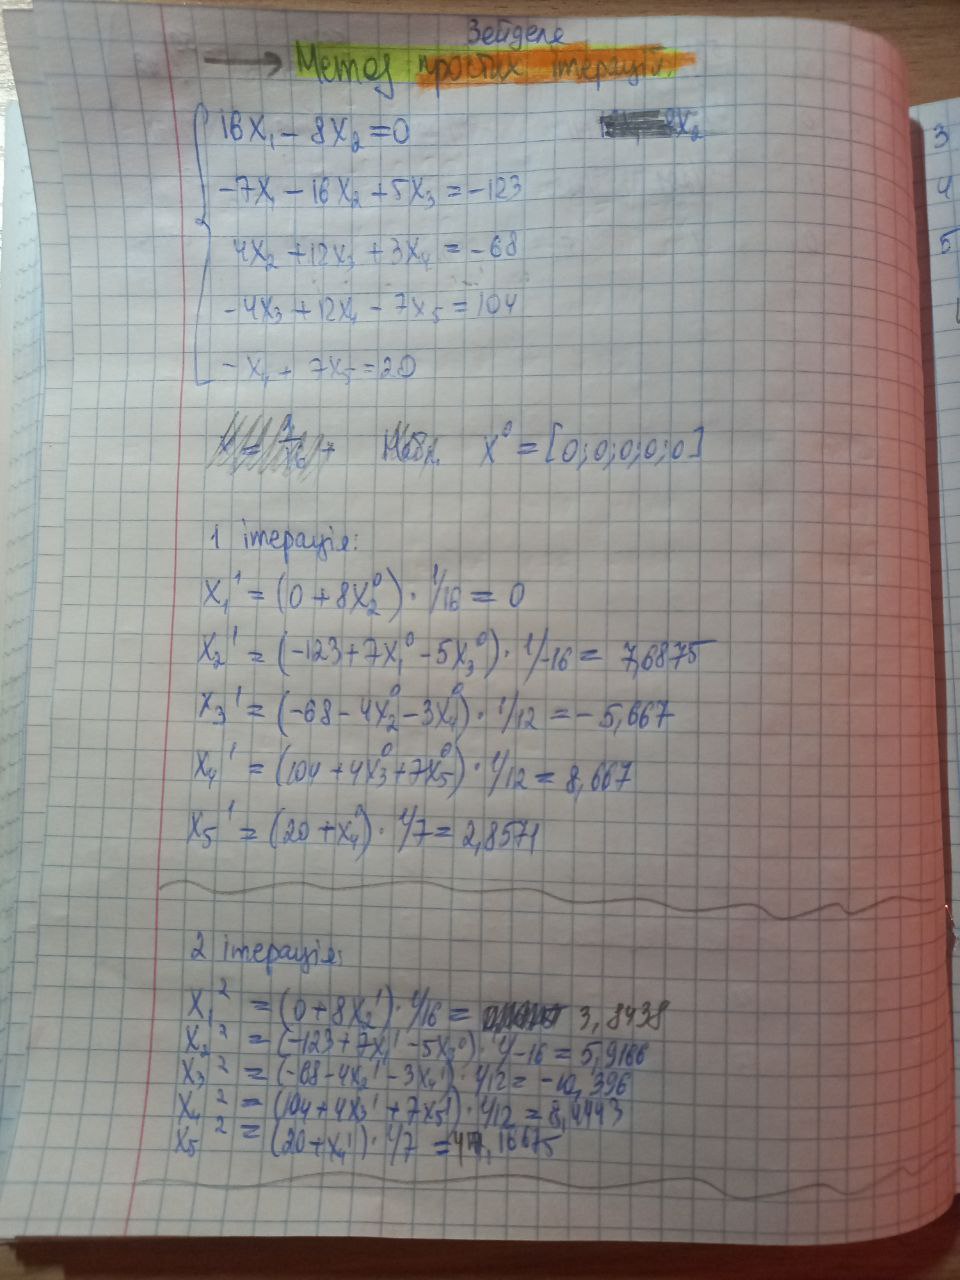 Зейделя
→ Метод простих ітерацій.
16x₁ - 8x₂ = 0
8x₂
-7x₁ - 16x₂ + 5x₃ = -123
4x₂ + 12x₃ + 3x₄ = -68
-4x₃ + 12x₄ - 7x₅ = 104
-x₄ + 7x₅ = 20
Набл. x⁰ = [0;0;0;0;0]
1 ітерація:
x₁¹ = (0 + 8x₂⁰) · 1/16 = 0
x₂¹ = (-123 + 7x₁⁰ - 5x₃⁰) · 1/-16 = 7,6875
x₃¹ = (-68 - 4x₂⁰ - 3x₄⁰) · 1/12 = -5,667
x₄¹ = (104 + 4x₃⁰ + 7x₅⁰) · 1/12 = 8,667
x₅¹ = (20 + x₄⁰) · 1/7 = 2,8571
2 ітерація:
x₁² = (0 + 8x₂¹) · 1/16 = 3,8438
x₂² = (-123 + 7x₁¹ - 5x₃⁰) · 1/-16 = 5,9166
x₃² = (-68 - 4x₂¹ - 3x₄¹) · 1/12 = -10,396
x₄² = (104 + 4x₃¹ + 7x₅¹) · 1/12 = 8,4443
x₅² = (20 + x₄¹) · 1/7 = 4,16675
3
4
5